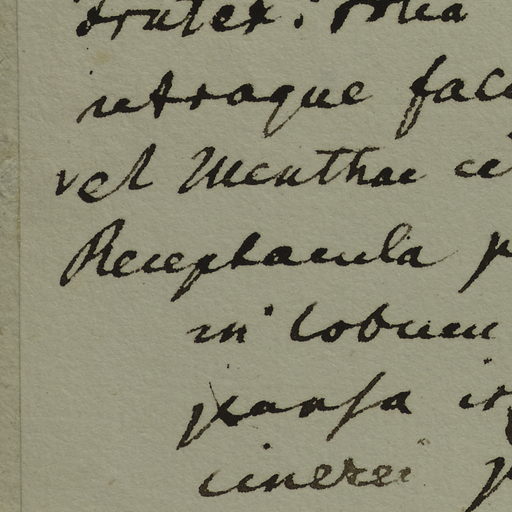 Frutex. folia
utraque fac
vel Menthae ci
Receptacula p
in lobum
pansa i
cinerei p